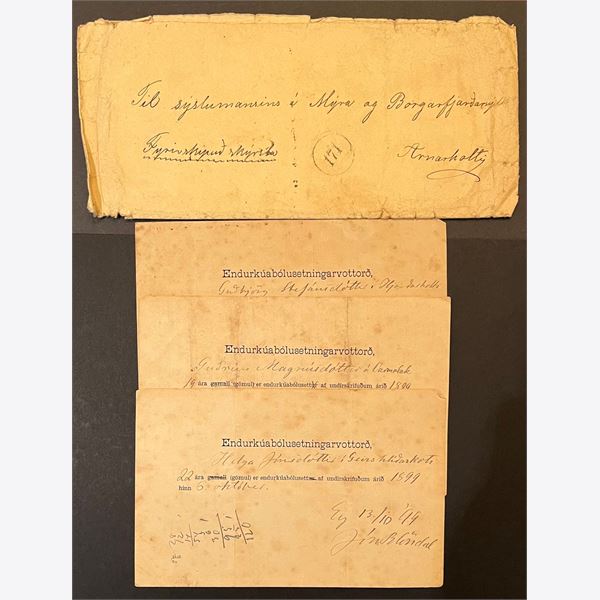 Til sýslumansins á Mýra og Borgarfjarðarsýslu
Fyrirskipuð skýrsla
171
Arnarholti
Endurkúabólusetningarvottorð,
Guðbjörg Stefánsdóttir
Endurkúabólusetningarvottorð,
Guðrún Magnúsdóttir á
19 ára gamall (gömul) er endurkúabólusettur af undirskrifuðum árið 1899
Endurkúabólusetningarvottorð,
Helga Jónsdóttir í Geirshlíðarkoti
22 ára gamall (gömul) er endurkúabólusettur af undirskrifuðum árið 1899
hinn 5. október.
Ey 13/10 '99
Jón Blöndal